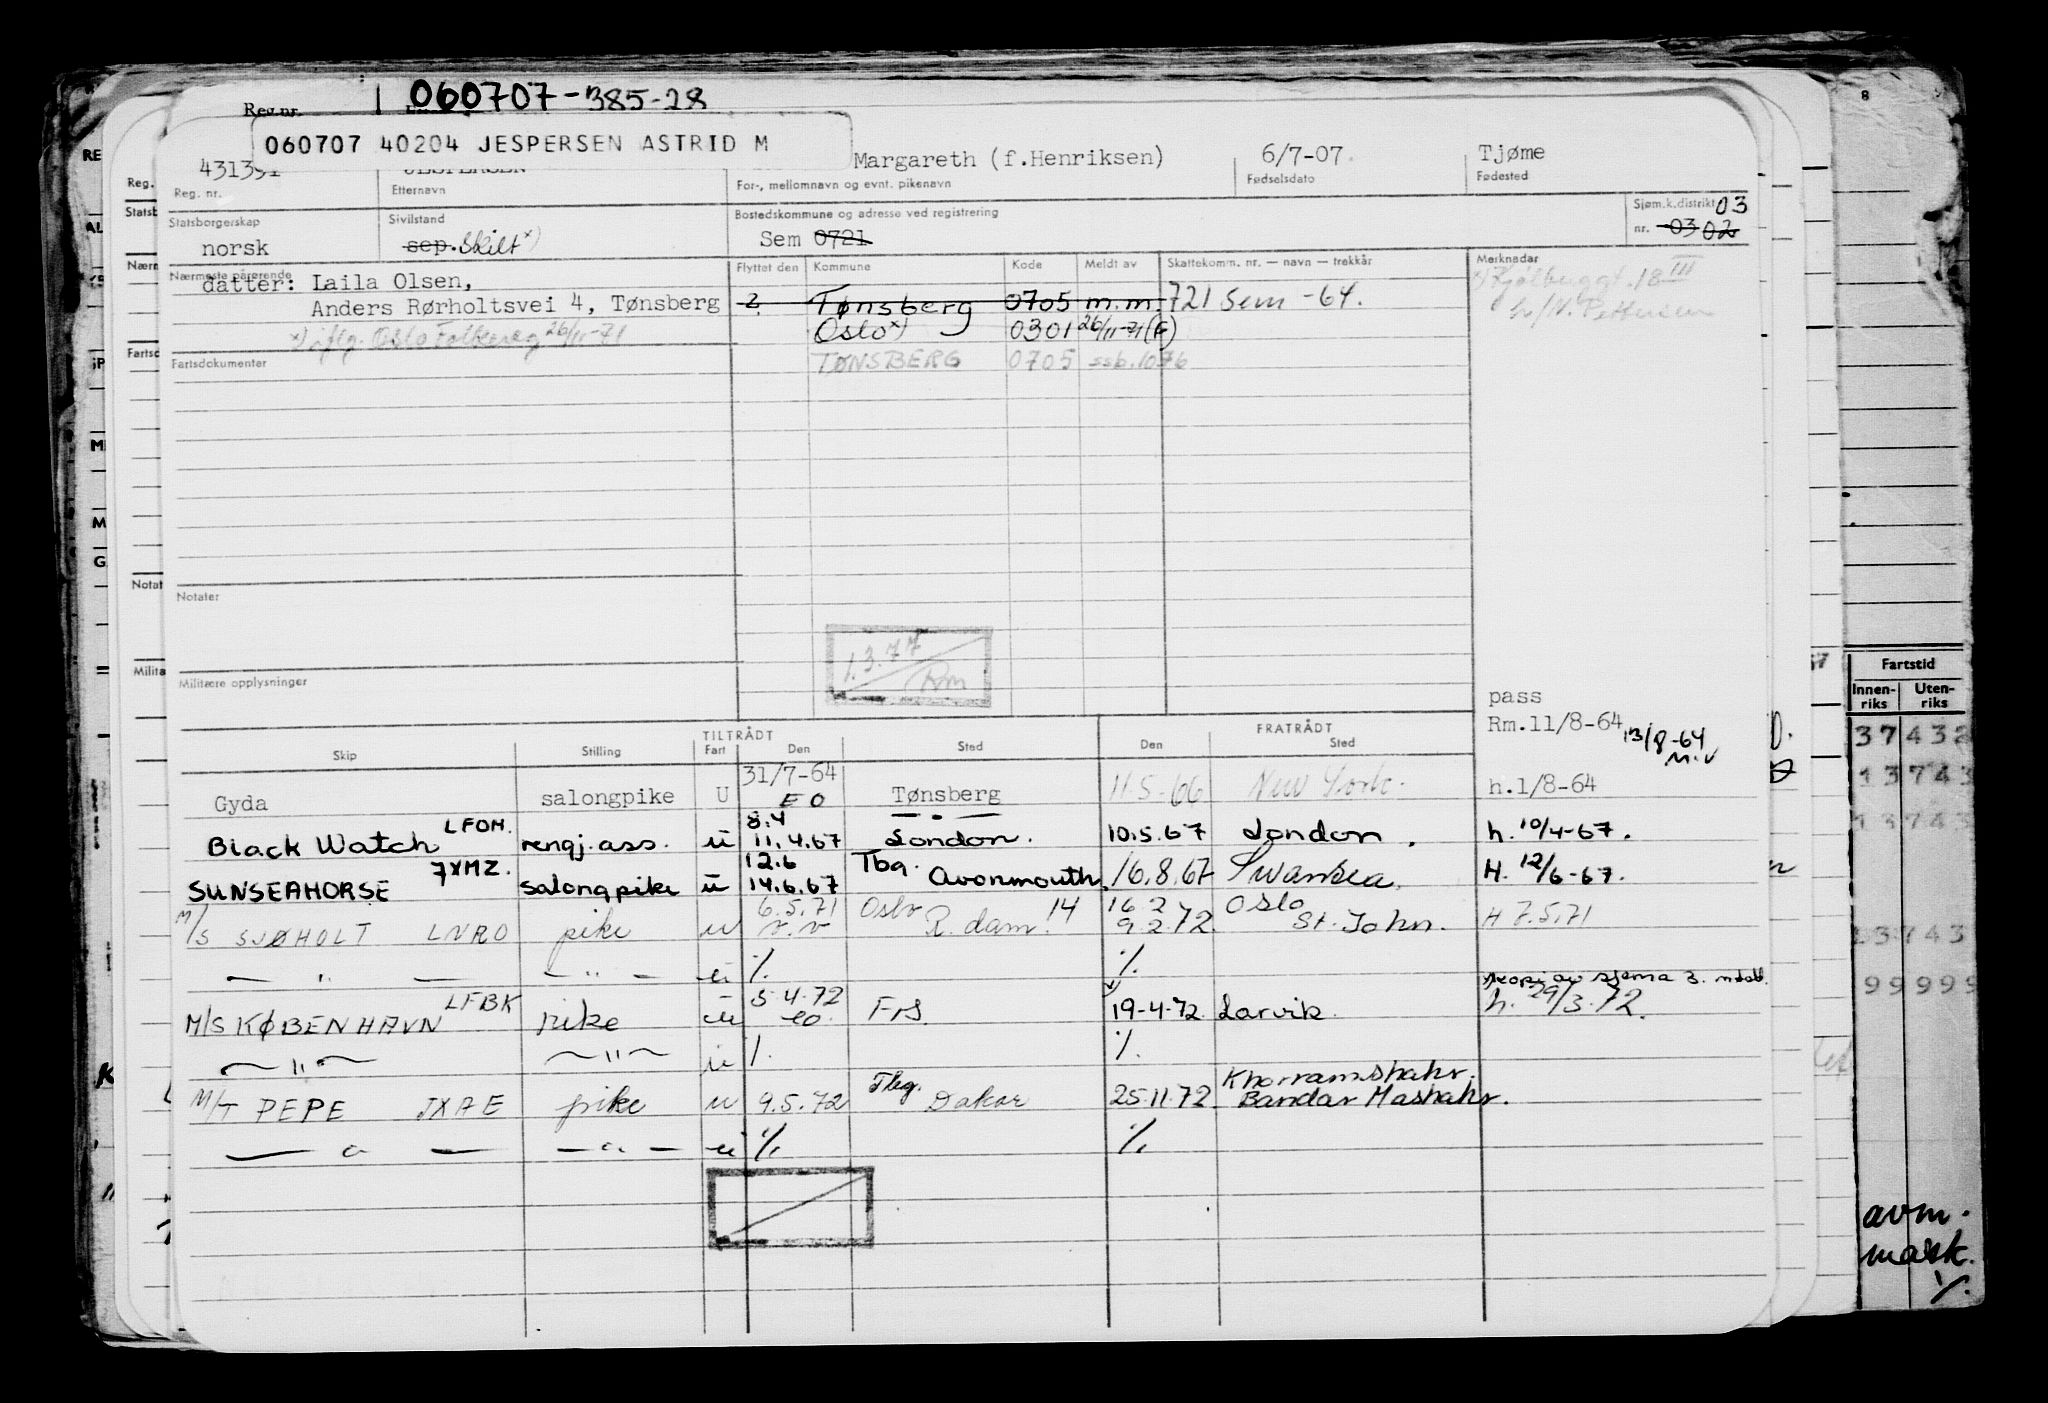 Reg.nr. 060707-385-28
060707 40204 JESPERSEN ASTRID M
Margareth (f.Henriksen) 6/7-07. Tjøme
Reg. nr. Etternavn For-, mellomnavn og evnt. pikenavn Fødselsdato Fødested
Statsborgerskap Sivilstand Bostedskommune og adresse ved registrering Sjøm.k.distrikt 03
norsk sep. Skilt x) Sem 0721 nr. 03 02
Nærmeste pårørende Flyttet den Kommune Kode Meldt av Skattekomm. nr. — navn — trekkår Merknader
datter: Laila Olsen,
Anders Rørholtsvei 4, Tønsberg 2 Tønsberg 0705 m.m. 721 Sem -64.
x) iflg. Oslo Folkereg 26/11-71 Oslo x) 0301 26/11-71 (F)
Fartsdokumenter TØNSBERG 0705 ssb. 1076
Notater
1.3.77
Rm
Militære opplysninger
pass
Rm.11/8-64 13/8-64
TILTRÅDT FRATRÅDT
Skip Stilling Fart Den Sted Den Sted
Gyda salongpike U 31/7-64 EO Tønsberg 11.5.66 New York. h.1/8-64
Black Watch LFOM. rengj.ass. u 8.4 11.4.67 — " — London. 10.5.67 London. h. 10/4-67.
SUNSEAHORSE 7XMZ. salongpike u 12.6 14.6.67 Tbg. Avonmouth. 16.8.67 Swansea. H. 12/6-67.
M/S SJØHOLT LNRO pike u 6.5.71 Oslo R.dam. 14 16.2 9.2.72 Oslo St. John. H 7.5.71
— " — — " — u % %
M/S KØBENHAVN LFBK pike u 5.4.72 eo. FrS. 19-4-72. Larvik. h. 29/3.72.
— " — — " — u % %
M/T PEPE JXAE pike u 9.5.72 Tbg. Dakar 25.11.72 Khorramshahr. Bandar Mashahr.
— " — — " — u % %
Fartstid
Innen-riks Uten-riks
37432
13743
13743
13743
99999
avm.
mask.
%